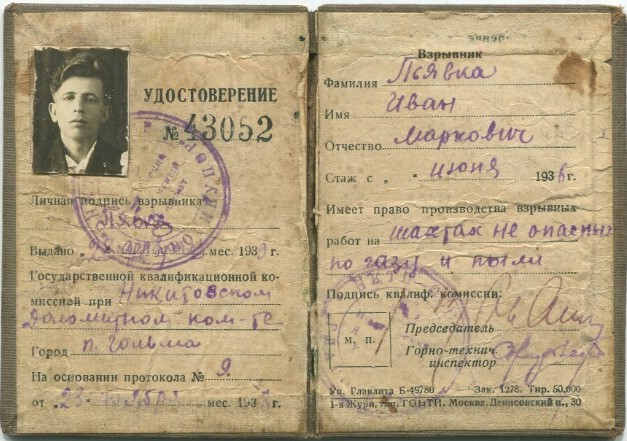 УДОСТОВЕРЕНИЕ
№ 43052
Личная подпись взрывника
Пявка
Выдано мес. 1939 г.
Государственной квалификационной ко-
миссией при Никитовском
Доломитном ком-те
Город п. Гольма
На основании протокола № 9
от 23 мес. 193 г.
Взрывник
Фамилия Пявка
Имя Иван
Отчество Маркович
Стаж с „ июня 1936 г.
Имеет право производства взрывных
работ на шахтах не опасных
по газу и пыли
Подпись квалиф. комиссии:
м. п.
Председатель
Горно-технич.
инспектор
Уп. Главлита Б-49780 Зак. 1278. Тир. 50.000
1-я Журн. тип. ГОНТИ. Москва. Денисовский п., 30